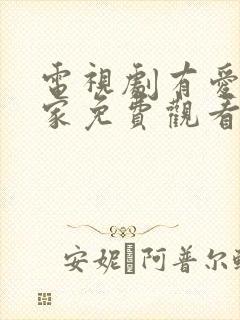 電視劇有愛
家免費觀看
安妮·阿普尔